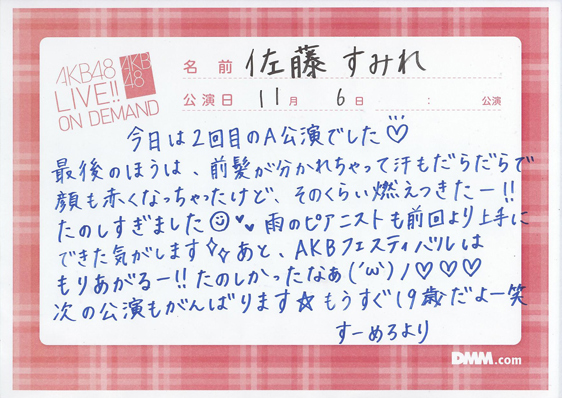 AKB48
LIVE!!
ON DEMAND
AKB
48
名前 佐藤 すみれ
公演日 11月 6日 : 公演
今日は2回目のA公演でした♡
最後のほうは、前髪が分かれちゃって汗もだらだらで
顔も赤くなっちゃったけど、そのくらい燃えつきたー!!
たのしすぎました☺♥♥ 雨のピアニストも前回より上手に
できた気がします✧✧あと、AKBフェスティバルは
もりあがるー!!たのしかったなぁ(´ω`)ノ♡♡♡
次の公演もがんばります☆もうすぐ19歳だよー笑
すーめろより
DMM.com